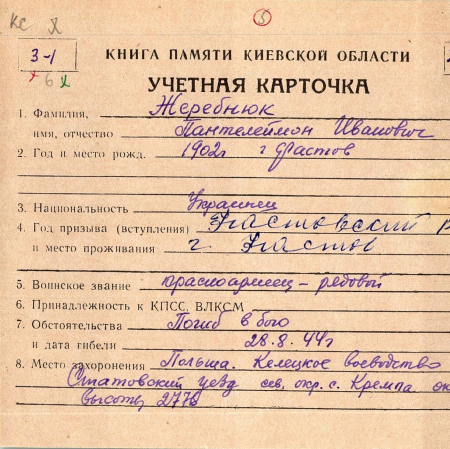 КС
5
3-1
6
КНИГА ПАМЯТИ КИЕВСКОЙ ОБЛАСТИ
УЧЕТНАЯ КАРТОЧКА
1. Фамилия, Жеребнюк
имя, отчество Пантелеймон Иванович
2. Год и место рожд. 1902г г Фастов
3. Национальность Украинец
4. Год призыва (вступления) Фастовский р
и место проживания г. Фастов
5. Воинское звание красноармеец – рядовой
6. Принадлежность к КПСС, ВЛКСМ
7. Обстоятельства Погиб в бою
и дата гибели 28.8.44г
8. Место захоронения Польша. Келецкое воеводство
уезд сев. окр. с. Кремпа ок
высоты